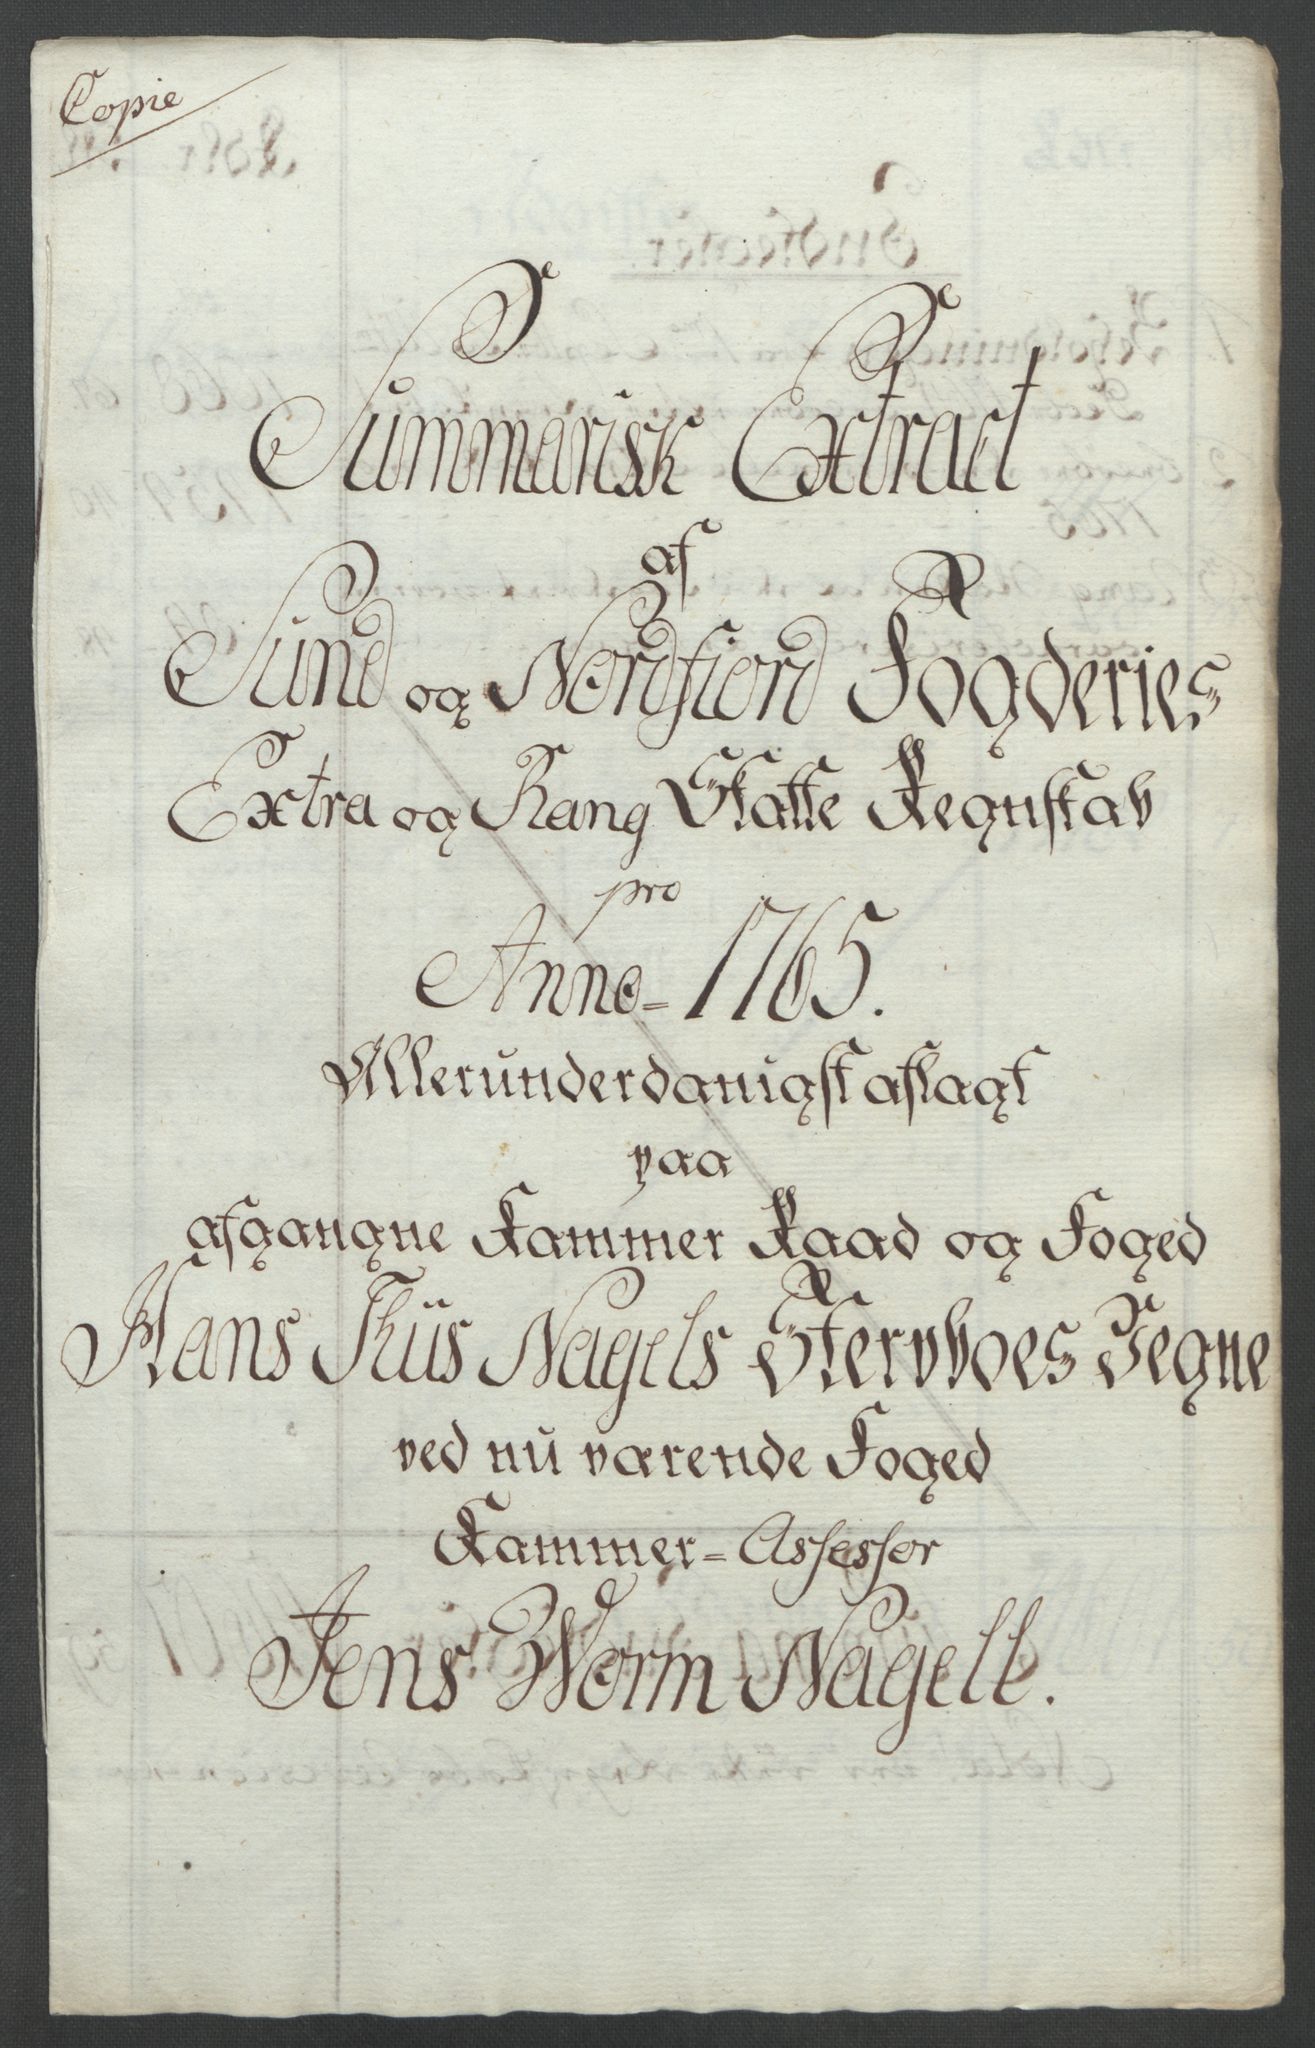 Copie
Summarisk Extract
af
Sund og Nordfiord Fogderies
Extra og Rang Skatte Regnskab
pro
Anno- 1765.
Allerunderdanigst aflagt
paa
afgangne Kammer Raad og Foged
Hans Thiis Nagels Stervboes Vegne
ved nu værende Foged
Kammer-Assessor
Jens Worm Nagell.